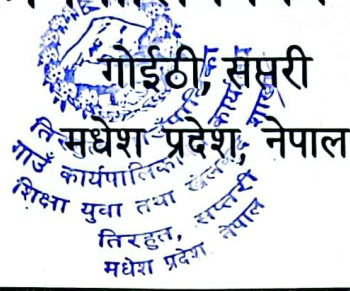 गोईठी, सप्तरी
मधेश प्रदेश, नेपाल
गाउँ कार्यपालिका
शिक्षा युवा तथा खेलकुद शाखा
तिरहुत, सप्तरी
मधेश प्रदेश, नेपाल